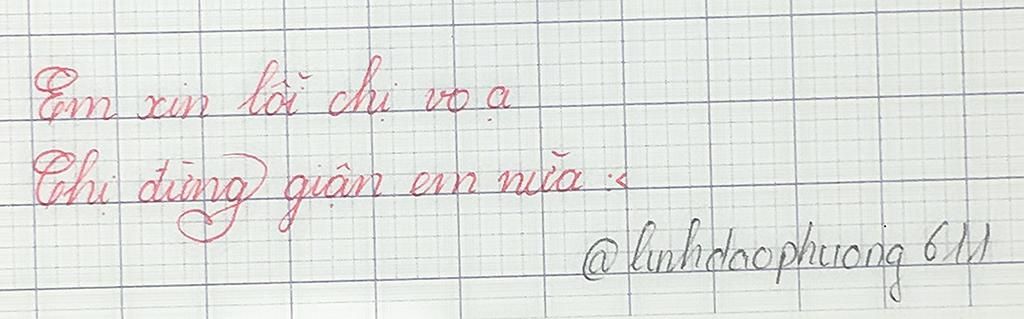 Em xin lỗi chị vợ ạ
Chị đừng giận em nữa :<
@linhdaophuong611